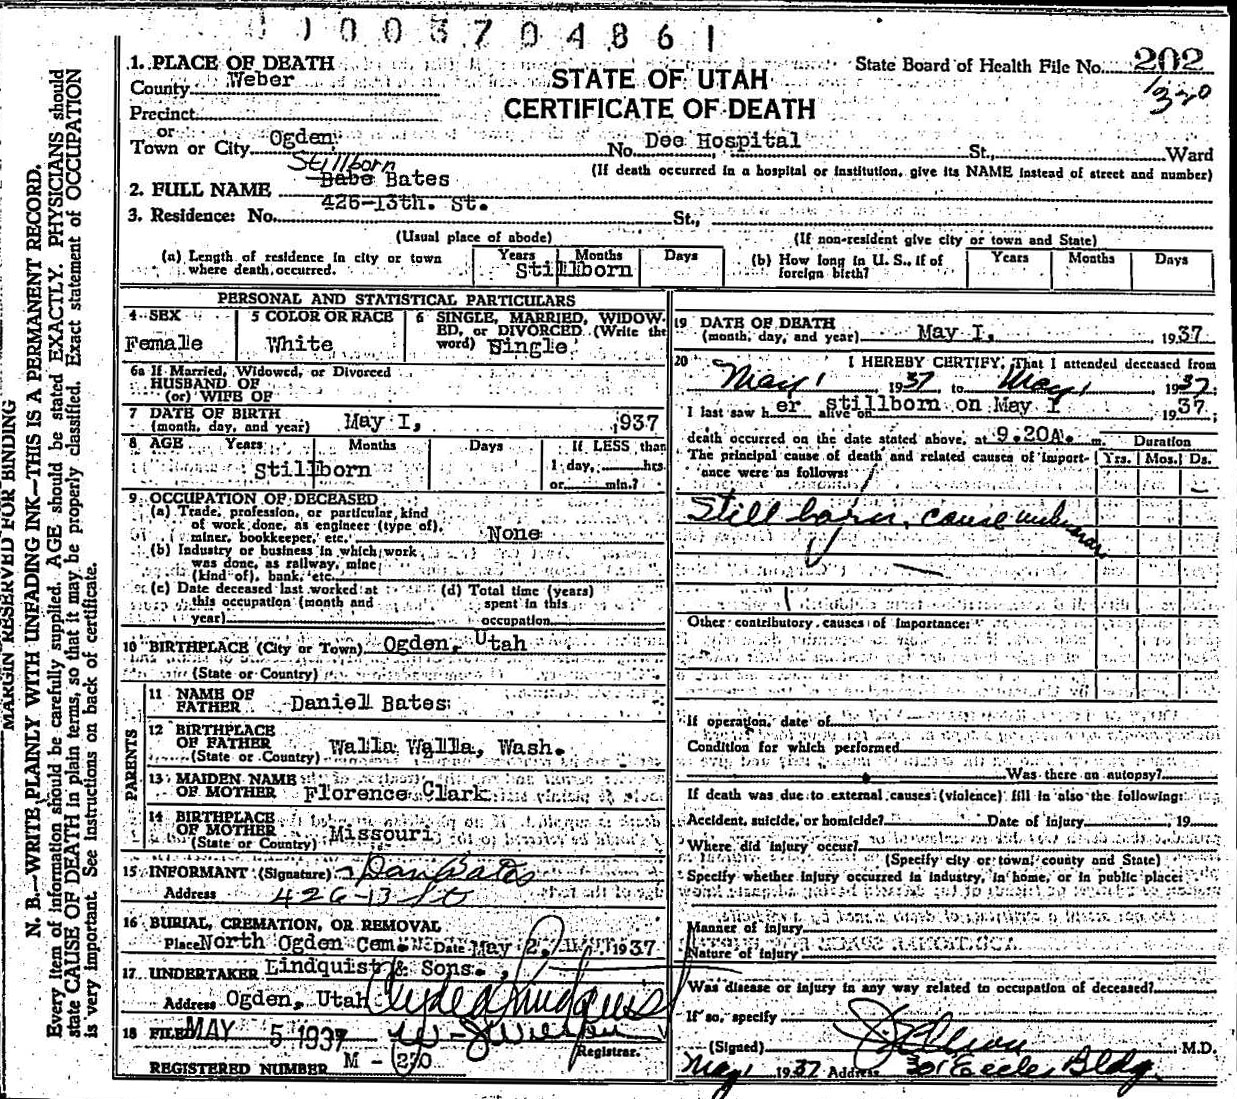 003704861
1. PLACE OF DEATH
County Weber
Precinct
or
Town or City Ogden
STATE OF UTAH
CERTIFICATE OF DEATH
State Board of Health File No. 202
No. Dee Hospital St., Ward
(If death occurred in a hospital or institution, give its NAME instead of street and number)
Stillborn
2. FULL NAME Babe Bates
426-13th. St.
3. Residence: No. St.,
(Usual place of abode) (If non-resident give city or town and State)
(a) Length of residence in city or town where death occurred. Years Months Days
Stillborn
(b) How long in U. S., if of foreign birth? Years Months Days
PERSONAL AND STATISTICAL PARTICULARS
4 SEX
Female
5 COLOR OR RACE
White
6 SINGLE, MARRIED, WIDOW-
ED, or DIVORCED (Write the
word) Single
6a If Married, Widowed, or Divorced
HUSBAND OF
(or) WIFE OF
7 DATE OF BIRTH
(month, day, and year) May I, 1937
8 AGE Years Months Days If LESS than
Stillborn 1 day, hrs.
or min.?
9 OCCUPATION OF DECEASED
(a) Trade, profession, or particular kind
of work done, as engineer (type of),
miner, bookkeeper, etc. None
(b) Industry or business in which work
was done, as railway, mine
(kind of), bank, etc.
(c) Date deceased last worked at
this occupation (month and
year)
(d) Total time (years)
spent in this
occupation
10 BIRTHPLACE (City or Town) Ogden, Utah
(State or Country)
PARENTS
11 NAME OF
FATHER Daniel Bates
12 BIRTHPLACE
OF FATHER
(State or Country) Walla Walla, Wash.
13 MAIDEN NAME
OF MOTHER Florence Clark
14 BIRTHPLACE
OF MOTHER
(State or Country) Missouri
15 INFORMANT (Signature) Dan Bates
Address 426-13 St
16 BURIAL, CREMATION, OR REMOVAL
Place North Ogden Cem. Date May 2, 1937
17 UNDERTAKER Lindquist & Sons.
Address Ogden, Utah
18 FILED MAY 5 1937
Registrar.
REGISTERED NUMBER M -
19 DATE OF DEATH
(month, day, and year) May I, 1937
20 I HEREBY CERTIFY, That I attended deceased from
May 1 1937 to May 1 1937
I last saw her alive on stillborn on May I 1937;
death occurred on the date stated above, at 9.20A. m.
Duration
The principal cause of death and related causes of import-
ance were as follows:
Yrs. Mos. Ds.
Still born, cause unknown
Other contributory causes of importance:
If operation, date of
Condition for which performed
Was there an autopsy?
If death was due to external causes (violence) fill in also the following:
Accident, suicide, or homicide? Date of injury , 19
Where did injury occur?
(Specify city or town, county and State)
Specify whether injury occurred in industry, in home, or in public place:
Manner of injury
Nature of injury
Was disease or injury in any way related to occupation of deceased?
If so, specify
(Signed) M.D.
May 1 1937 Address 301 Eccles Bldg.
MARGIN RESERVED FOR BINDING
N. B.—WRITE PLAINLY WITH UNFADING INK—THIS IS A PERMANENT RECORD.
Every item of information should be carefully supplied. AGE should be stated EXACTLY. PHYSICIANS should
state CAUSE OF DEATH in plain terms, so that it may be properly classified. Exact statement of OCCUPATION
is very important. See instructions on back of certificate.